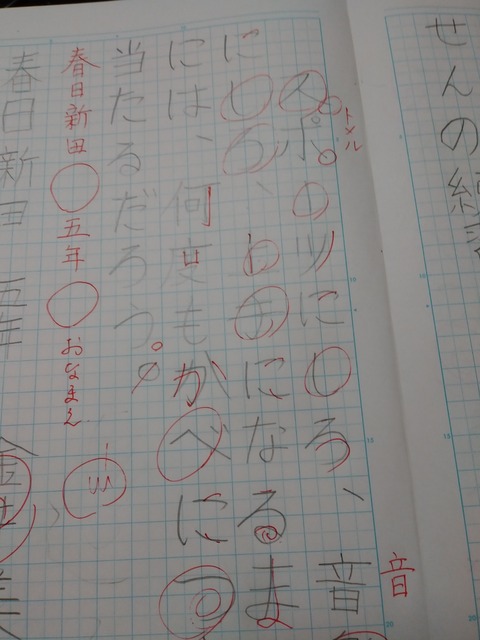 せんの
スポーツにしろ、音
トメル
音
にしろ、になるま
には、何度もかべにつ
当たるだろう。
春日新田〇五年〇おなまえ
春日新田 五年